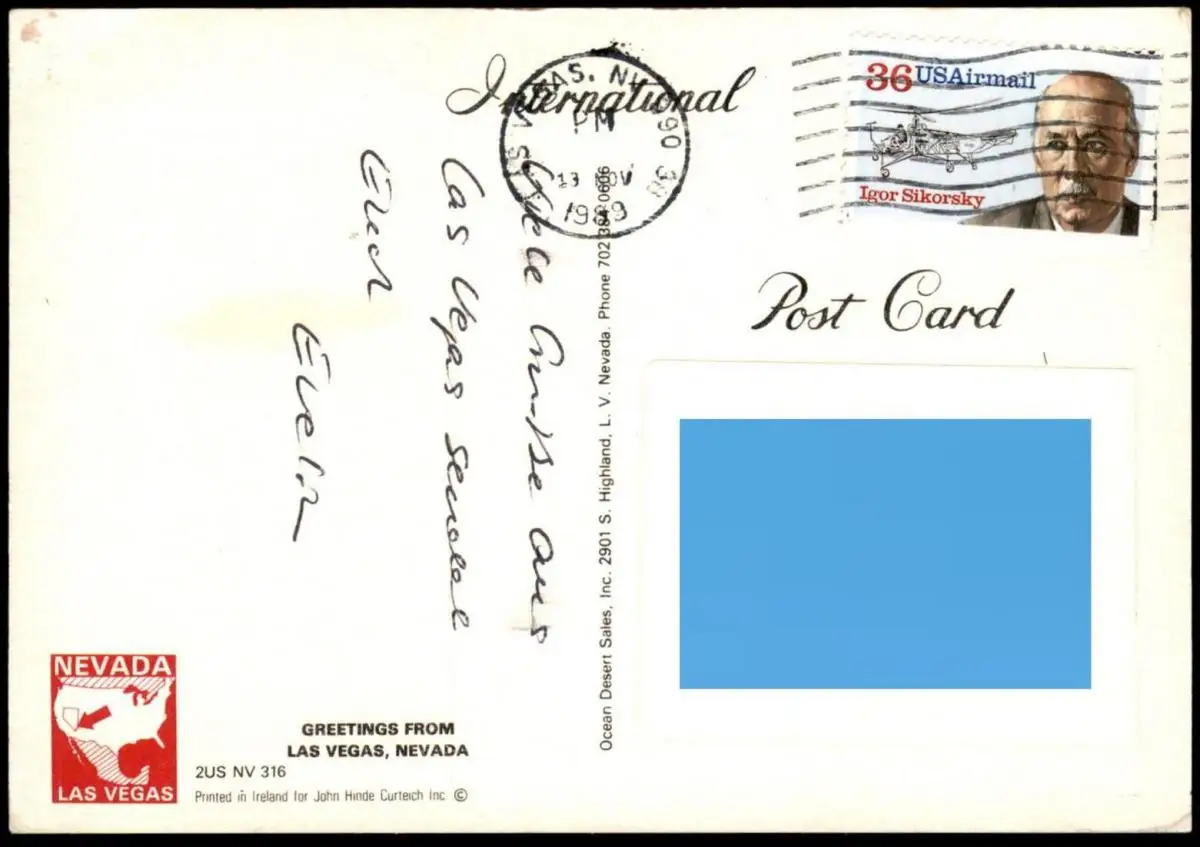 International
LAS VEGAS, NV 890
PM
13 NOV
1989
36 USAirmail
Igor Sikorsky
Post Card
Viele Grüsse aus
Las Vegas sendet
Euch
Evelin
Ocean Desert Sales, Inc. 2901 S. Highland, L. V. Nevada. Phone 702 384 0606
NEVADA
LAS VEGAS
GREETINGS FROM
LAS VEGAS, NEVADA
2US NV 316
Printed in Ireland for John Hinde Curteich Inc. ©